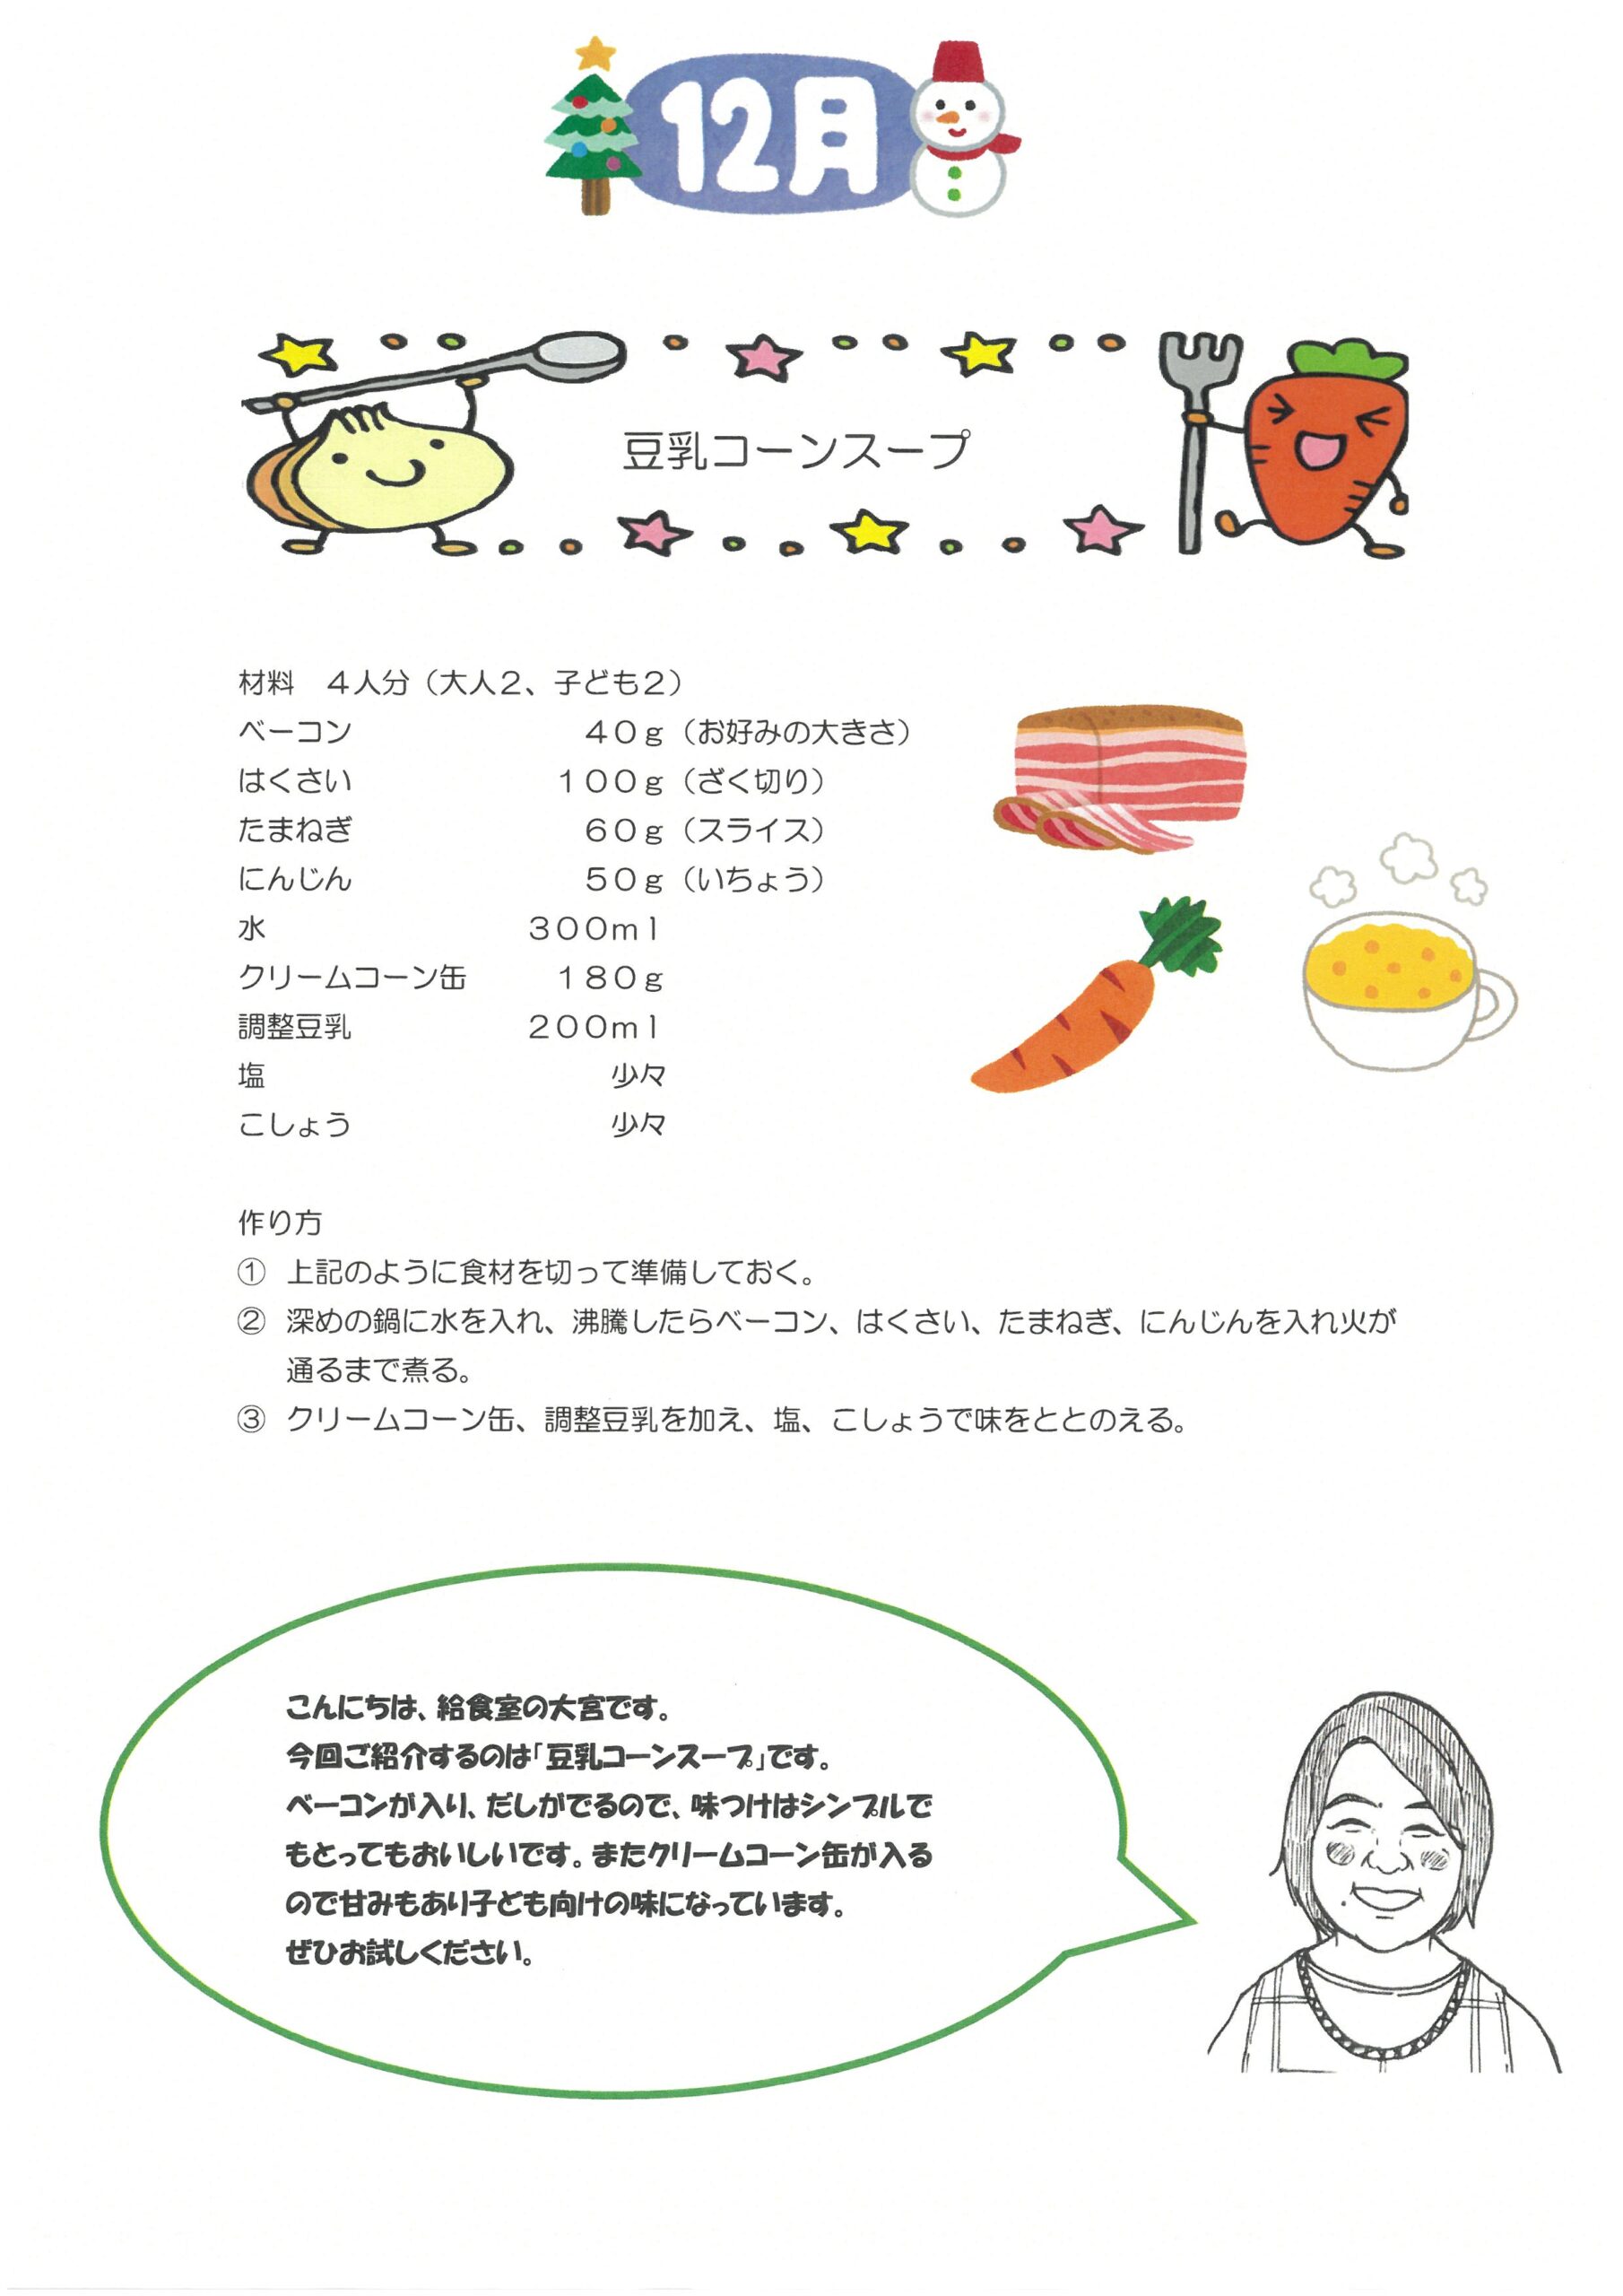 12月
豆乳コーンスープ
材料　４人分（大人２、子ども２）
ベーコン　４０ｇ（お好みの大きさ）
はくさい　１００ｇ（ざく切り）
たまねぎ　６０ｇ（スライス）
にんじん　５０ｇ（いちょう）
水　３００ｍｌ
クリームコーン缶　１８０ｇ
調整豆乳　２００ｍｌ
塩　少々
こしょう　少々
作り方
① 上記のように食材を切って準備しておく。
② 深めの鍋に水を入れ、沸騰したらベーコン、はくさい、たまねぎ、にんじんを入れ火が
通るまで煮る。
③ クリームコーン缶、調整豆乳を加え、塩、こしょうで味をととのえる。
こんにちは、給食室の大宮です。
今回ご紹介するのは「豆乳コーンスープ」です。
ベーコンが入り、だしがでるので、味つけはシンプルで
もとってもおいしいです。またクリームコーン缶が入る
ので甘みもあり子ども向けの味になっています。
ぜひお試しください。